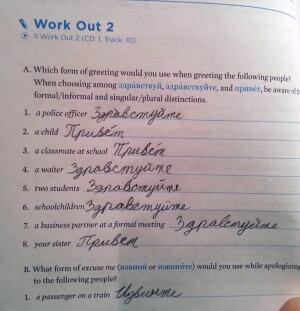 Work Out 2
11 Work Out 2 (CD: 1, Track: 10)
A. Which form of greeting would you use when greeting the following people?
When choosing among здравствуй, здравствуйте, and привет, be aware of
formal/informal and singular/plural distinctions.
1. a police officer Здравствуйте
2. a child Привет
3. a classmate at school Привет
4. a waiter Здравствуйте
5. two students Здравствуйте
6. schoolchildren Здравствуйте
7. a business partner at a formal meeting Здравствуйте
8. your sister Привет
B. What form of excuse me (извини or извините) would you use while apologizing
to the following people?
1. a passenger on a train Извините